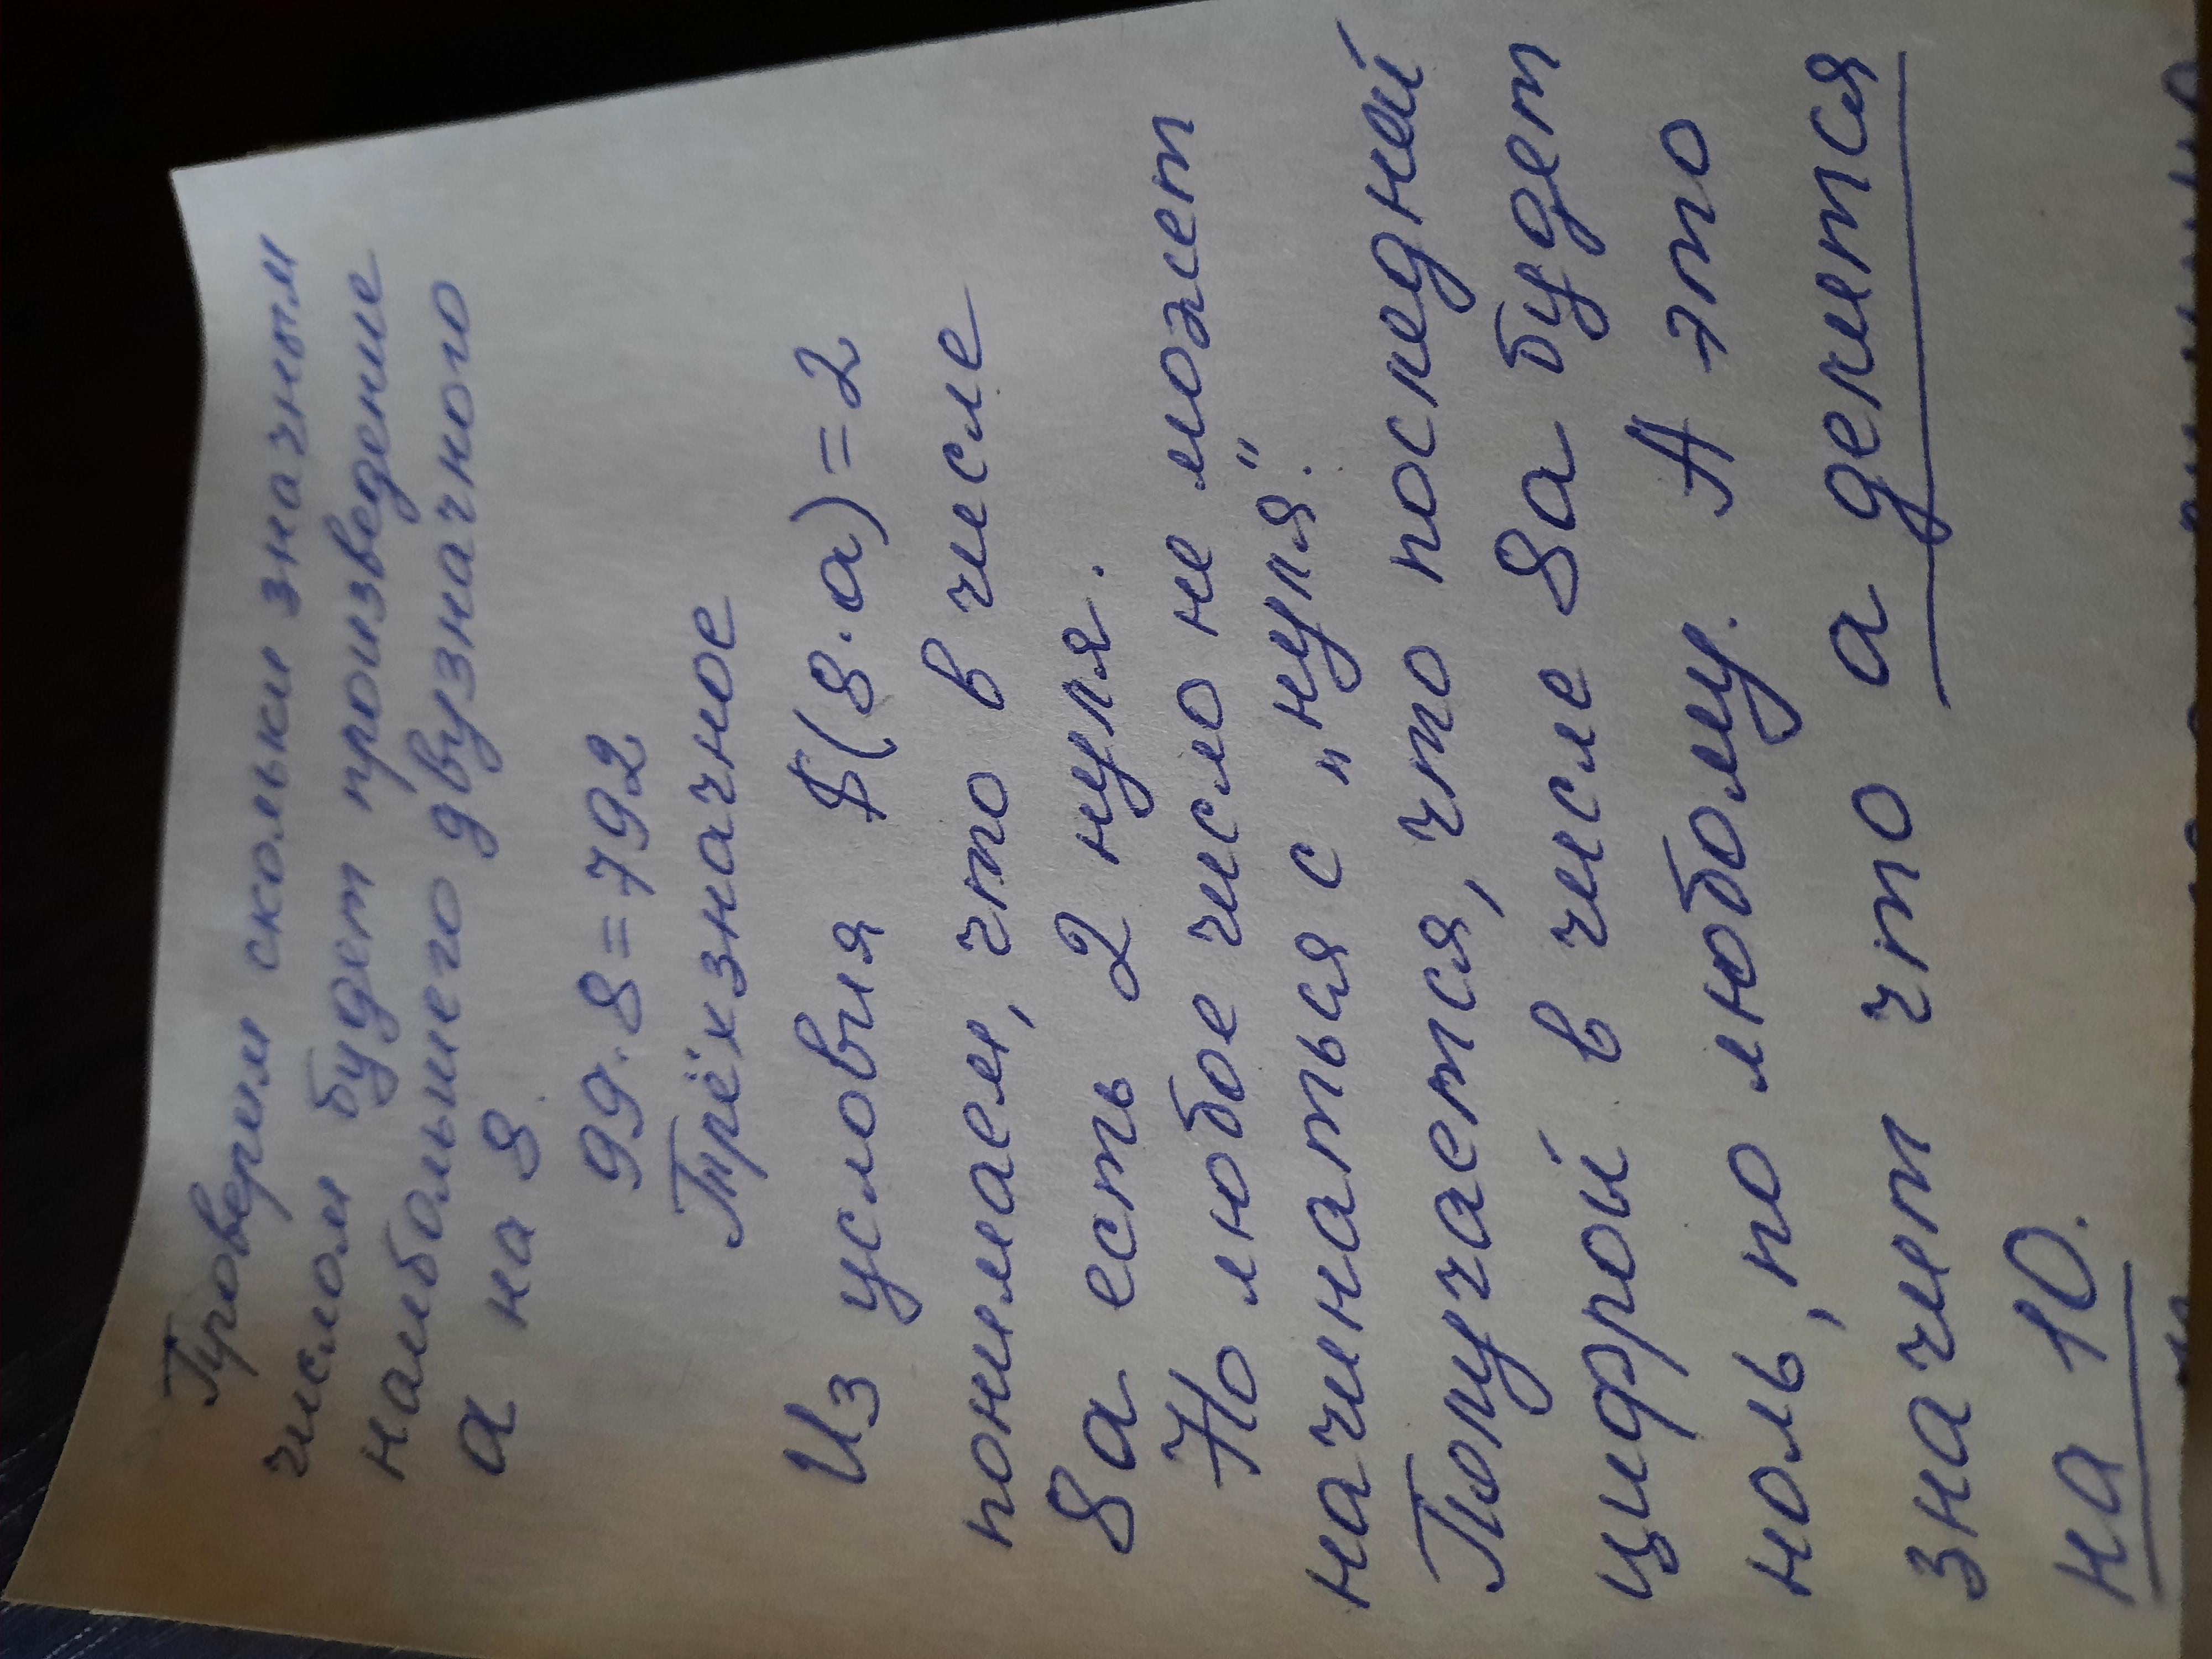 Проверим скольки значным
числом будет произведение
наибольшего двузначного
а на 8.
99·8=792
Трёхзначное
Из условия $(8·а)=2
понимаем, что в числе
8а есть 2 нуля.
Но любое число не может
начинаться с „нуля".
Получается, что последней
цифрой в числе 8а будет
ноль, по любому. А это
значит что а делится
на 10.